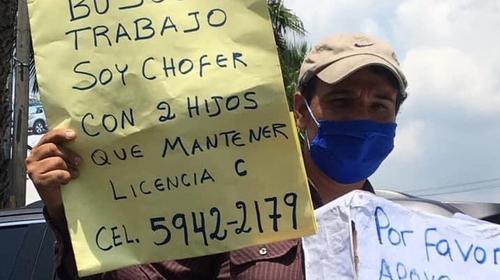 BUSCO
TRABAJO
SOY CHOFER
CON 2 HIJOS
QUE MANTENER
LICENCIA C
CEL. 5942-2179
Por favor